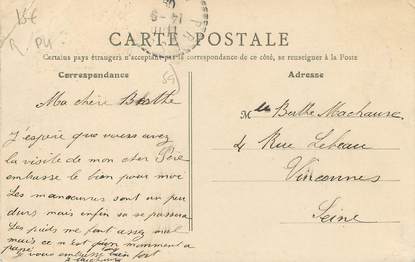 15€
CARTE POSTALE
Certains pays étrangers n'acceptant pas la correspondance de ce côté, se renseigner à la Poste
Correspondance
Ma chère Berthe
J'espère que vous avez
la visite de mon cher Père
embrasse le bien pour moi
Les manœuvres sont un peu
durs mais enfin sa se passera
Les pieds me font assez mal
mais ce n'est qu'un momment a
passé
Je vous embrasse bien fort
Adresse
Mlle Berthe Machause
4 Rue Lebeau
Vincennes
Seine